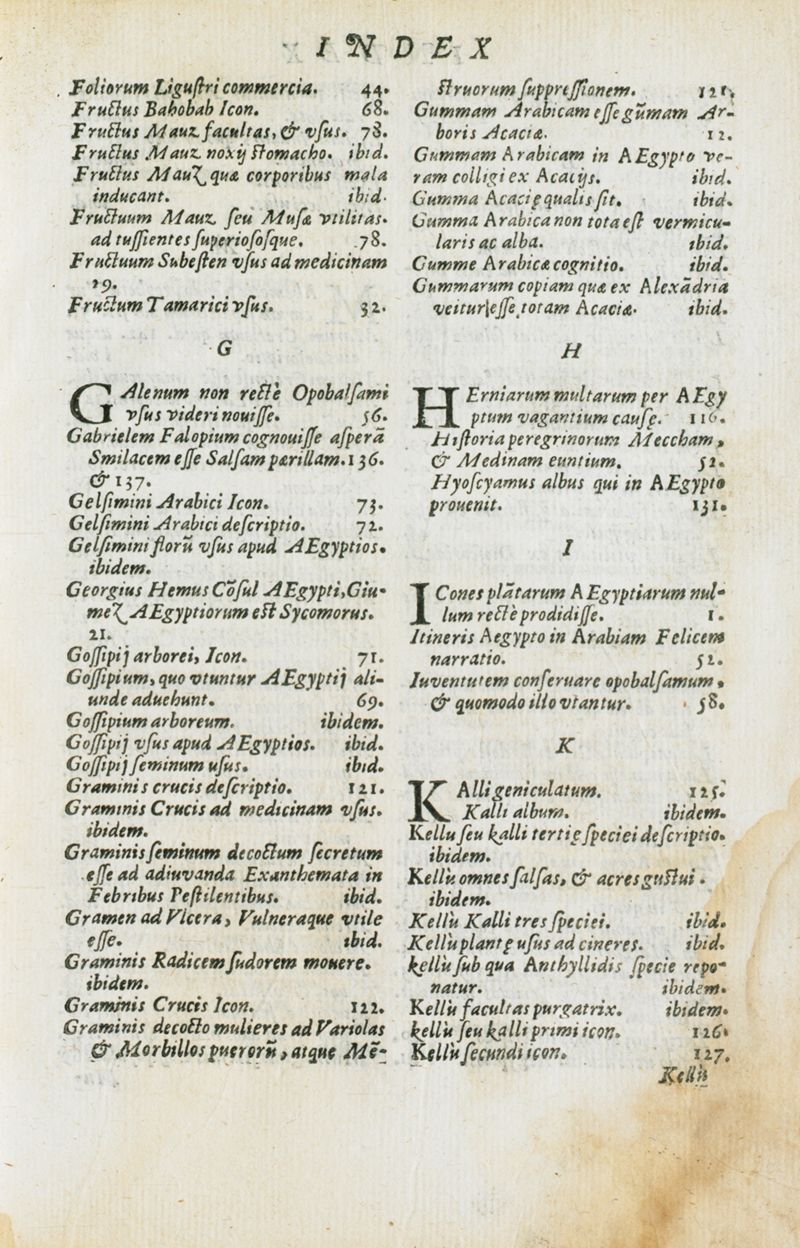 INDEX
Foliorum Liguſtri commercia. 44.
Fructus Bahobab Icon. 68.
Fructus Mauz facultas, & vſus. 78.
Fructus Mauz noxij stomacho. ibid.
Fructus Mauz quæ corporibus mala
inducant. ibid.
Fructuum Mauz ſeu Muſæ vtilitas.
ad tuſſientes ſuperioſoſque. 78.
Fructuum Sebeſten vſus ad medicinam
29.
Fructum Tamarici vſus. 32.
G
GAlenum non rectè Opobalſami
vſus videri nouiſſe. 56.
Gabrielem Falopium cognouiſſe aſperã
Smilacem eſſe Salſam pærillam. 136.
& 137.
Gelſimini Arabici Icon. 73.
Gelſimini Arabici deſcriptio. 72.
Gelſimini florũ vſus apud AEgyptios.
ibidem.
Georgius Hemus Cõſul AEgypti, Giu-
mez AEgyptiorum est Sycomorus.
21.
Goſſipij arborei, Icon. 71.
Goſſipium, quo vtuntur AEgyptij ali-
unde aduehunt. 69.
Goſſipium arboreum. ibidem.
Goſſipij vſus apud AEgyptios. ibid.
Goſſipij ſeminum uſus. ibid.
Graminis crucis deſcriptio. 121.
Graminis Crucis ad medicinam vſus.
ibidem.
Graminis ſeminum decoctum ſecretum
eſſe ad adiuvanda Exanthemata in
Febribus Peſtilentibus. ibid.
Gramen ad Vlcera, Vulneraque vtile
eſſe. ibid.
Graminis Radicem ſudorem mouere.
ibidem.
Graminis Crucis Icon. 122.
Graminis decocto mulieres ad Variolas
& Morbillos puerorũ, atque Mẽ-
struorum ſuppreſſionem. 121.
Gummam Arabicam eſſe gũmam Ar-
boris Acaciæ. 12.
Gummam Arabicam in AEgypto ve-
ram colligi ex Acacijs. ibid.
Gumma Acacię qualis ſit. ibid.
Gumma Arabica non tota eſt vermicu-
laris ac alba. ibid.
Gumme Arabicæ cognitio. ibid.
Gummarum copiam quæ ex Alexãdria
veitur eſſe totam Acaciæ. ibid.
H
HErniarum multarum per AEgy
ptum vagantium cauſę. 116.
Hiſtoria peregrinorum Meccham,
& Medinam euntium. 52.
Hyoſcyamus albus qui in AEgypto
prouenit. 131.
I
ICones plãtarum AEgyptiarum nul-
lum rectè prodidiſſe. 1.
Itineris Aegypto in Arabiam Felicem
narratio. 52.
Iuventutem conſeruare opobalſamum,
& quomodo illo vtantur. 58.
K
KAlli geniculatum. 125.
Kalli album. ibidem.
Kellu ſeu kalli tertię ſpeciei deſcriptio.
ibidem.
Kellu omnes ſalſas, & acres guſtui.
ibidem.
Kellu Kalli tres ſpeciei. ibid.
Kellu plantę uſus ad cineres. ibid.
kellu ſub qua Anthyllidis ſpecie repo-
natur. ibidem.
Kellu facultas purgatrix. ibidem.
kellu ſeu kalli primi icon. 126.
Kellu ſecundi icon. 127.
Kellu